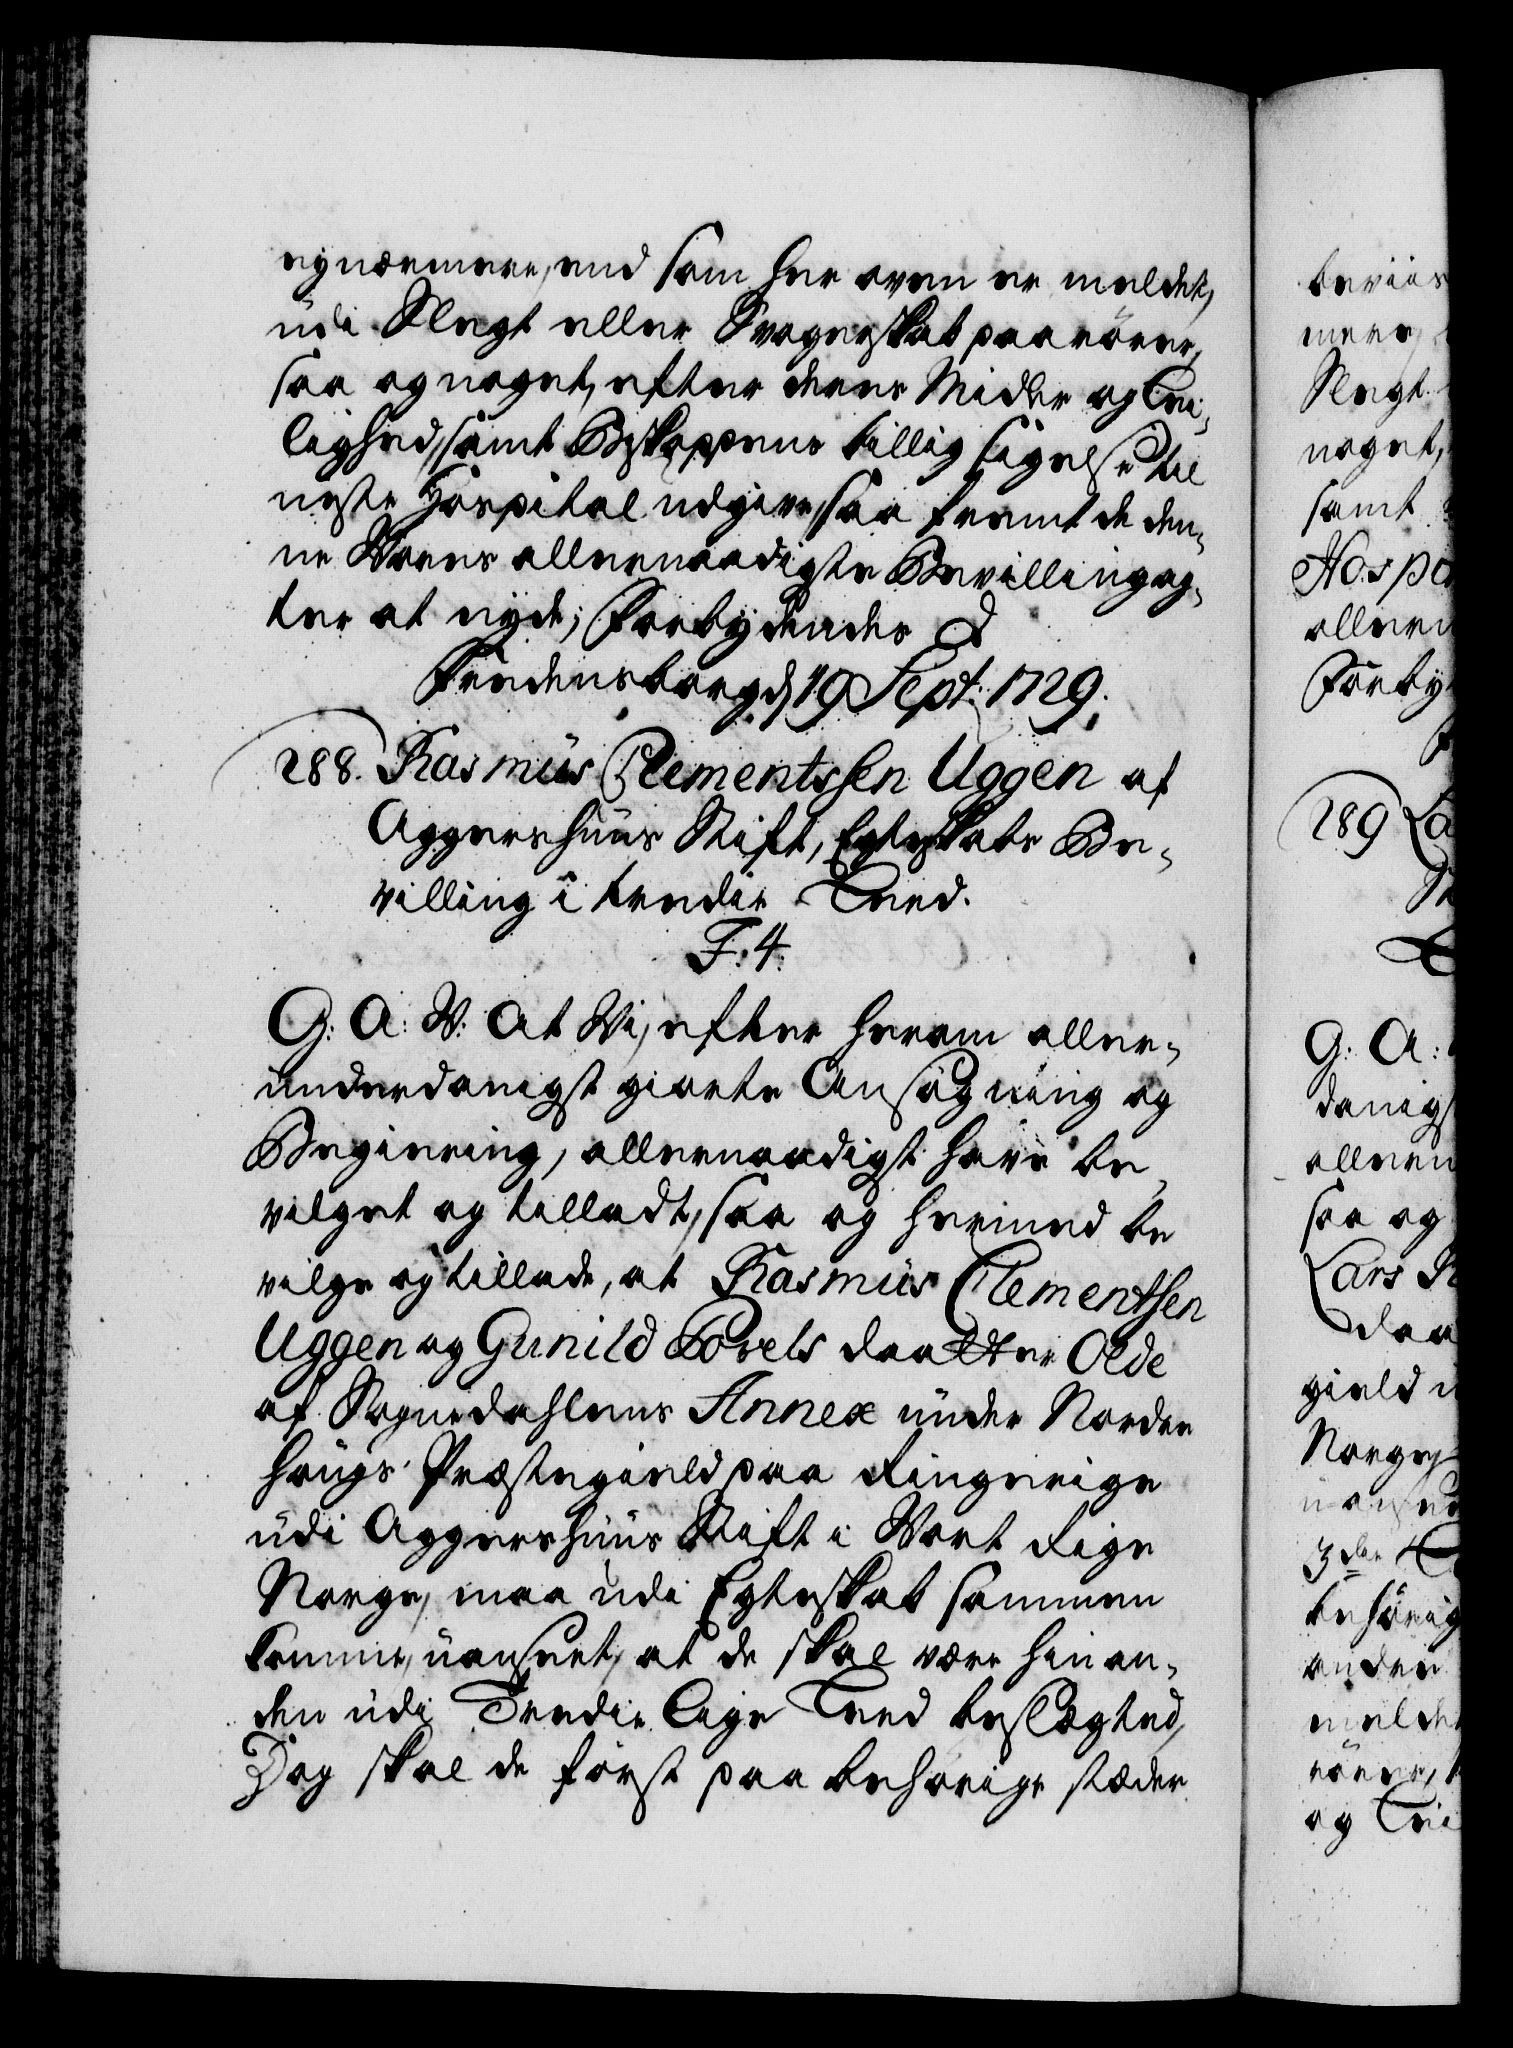 ey nærmere, end som her oven er meldet,
udi Slegt eller Svogerskab paarörer,
saa og noget, efter deres Midler og Lei-
lighed, samt Biskoppens tillig sigelse til
neste Hospital udgive, saa fremt de den-
ne Vores allernaadigste Bevilling ag-
ter at nyde; Forbydendes
Fredensborg d 19 Sept: 1729.
288. Rasmus Clementssen Uggen af
Aggershuus Stift, Egteskabs Be-
villing i tredie Leed.
F: 4.
G: A: V: At Vi, efter herom aller-
underdanigst giorte Ansögning og
Begiering, allernaadigst have be
vilget og tilladt, saa og hermed be
vilge og tillade, at Rasmus Clementsen
Uggen og Gunild Povels daatter Olde
af Sognedahlens Annex under Norder
hougs Præstegield paa Ringerige
udi Aggershuus Stift i Vort Rige
Norge, maa udi Egteskab sammen
komme, uanseet, at de skal være hinan-
den udi Tredie lige Leed beslægted,
Dog skal de först paa behörige stæder
beviis
meer,
Slegt
noget,
samt
Hospi
allern
Forby
289 La
G: A:
danigs
allern
saa og
Lars
daa
gield
Norge
uanseet
3die
behörig
anden
melde
rörer,
og Lei